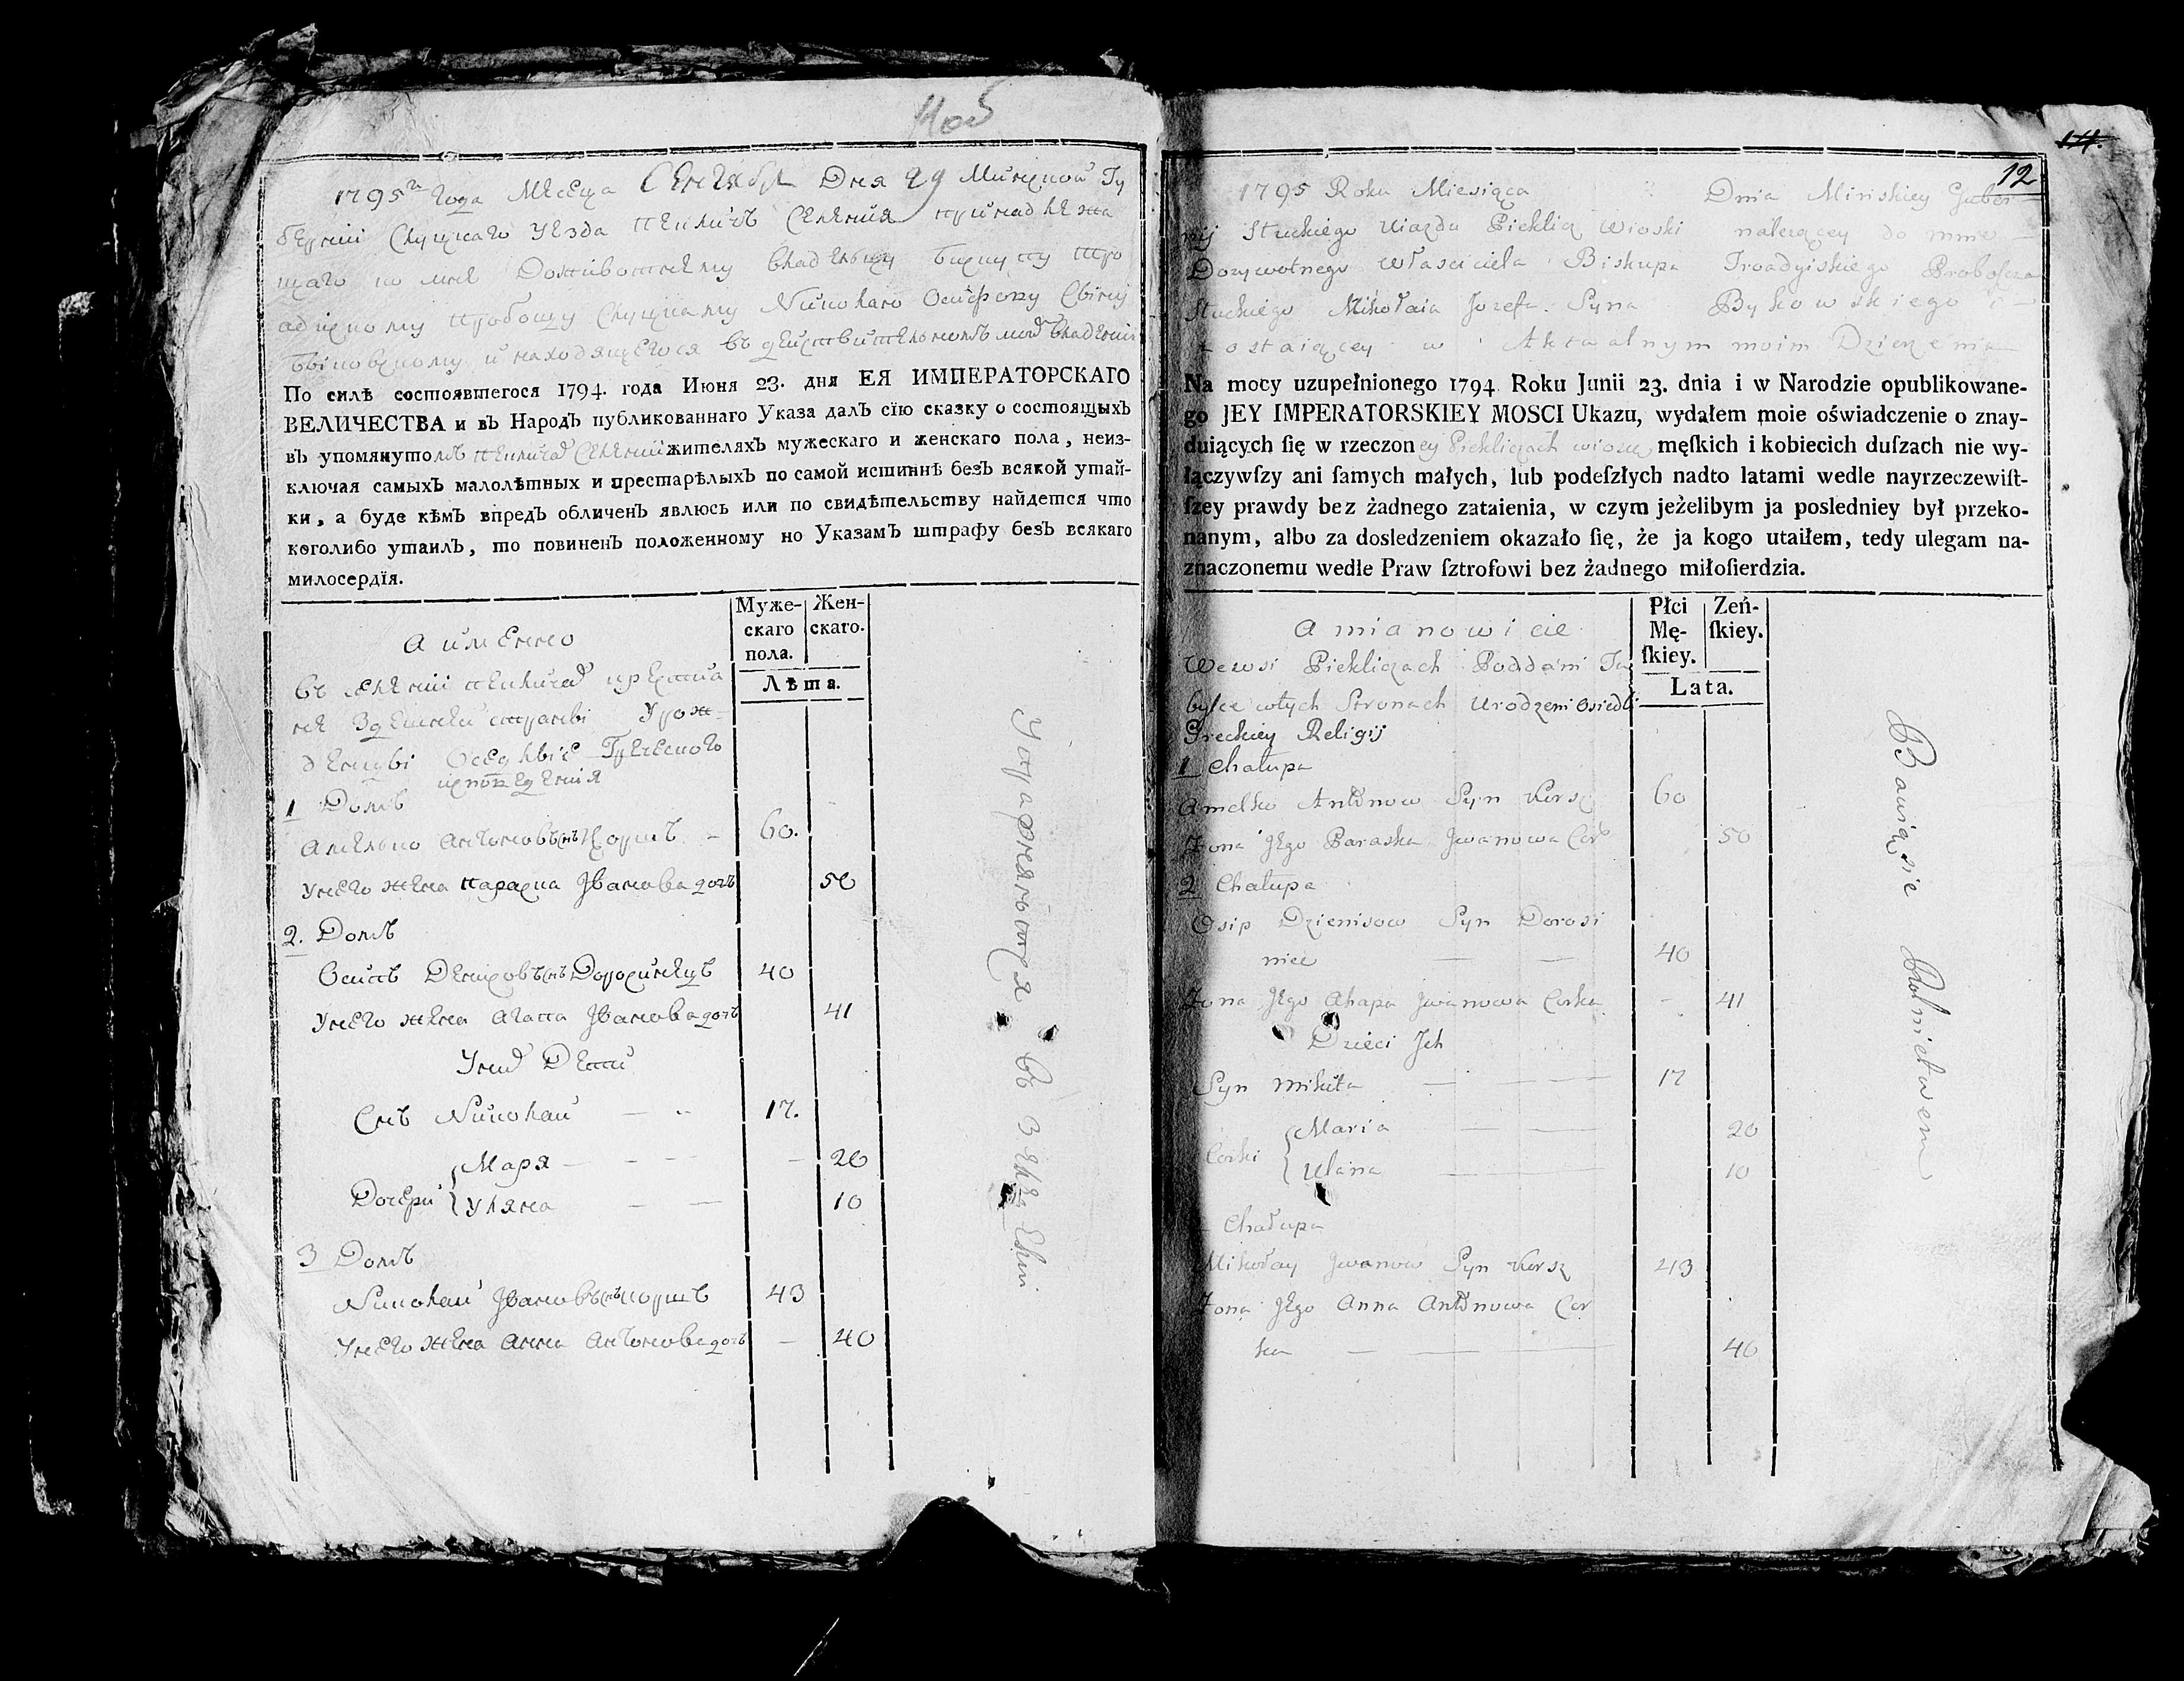 11об
1795го Года Месеца Сентября Дня 29 Минской Гу
берніи Слуцкаго Уезда Пекличъ Селения принадлежа
щаго по мне Доживотнему Владельцу Бискупу Тро
адискому Пробощу Слуцкому Николаю Осифову Сыну
Быковскому и находящегося въ действительномъ моемъ владении
По силѣ состоявшегося 1794. года Июня 23. дня ЕЯ ИМПЕРАТОРСКАГО
ВЕЛИЧЕСТВА и въ Народъ публикованнаго Указа далъ сїю сказку о состоящыхъ
въ упомянутомъ Пекличах Селении жителяхъ мужескаго и женскаго пола, неиз-
ключая самыхъ малолѣтных и престарѣлыхъ по самой истиннѣ безъ всякой утай-
ки, а буде кѣмъ впредъ обличенъ явлюсь или по свидѣтельству найдется что
коголибо утаилъ, то повиненъ положенному по Указамъ штрафу безъ всякаго
милосердїя.
Муже-
скаго
пола.
Жен-
скаго.
Лѣта.
А именно
въ селении Пекличах крестиа
не Здешней страны Урож
денцы Оседлые Греческого
исповедения
1 Домъ
Амелько Антоновъ снъ Коршъ - 60.
У него жена Параска Иванова дочъ 50
2. Домъ
Осипъ Денисовъ снъ Доросинецъ 40
У него жена Агапа Иванова дочъ 41
У них Дети
Снъ Николай 17.
Дочери { Маря 20
Уляна 10
3 Домъ
Николай Ивановъ снъ Коршъ 43
У него жена Анна Антонова дочъ 40
Упражняются в земледелии
14.
12
1795 Roku Miesiąca Dnia Mińskiey Guber
nij Słuckiego Uiazdu Pieklicz Wioski należącey do mnie
Dożywotnego Własciciela Biskupa Troadyiskiego Proboszcza
Słuckiego Mikołaia Jozefa Syna Bykowskiego i
zostaiącey w Aktualnym moim Dzierzeniu
Na mocy uzupełnionego 1794 Roku Junii 23. dnia i w Narodzie opublikowane-
go JEY IMPERATORSKIEY MOSCI Ukazu, wydałem moie oświadczenie o znay-
duiących ſię w rzeczoney Piekliczach wiosce męſkich i kobiecich duſzach nie wy-
łączywſzy ani ſamych małych, lub podeſzłych nadto latami wedle nayrzeczewiſt-
ſzey prawdy bez żadnego zataienia, w czym jeżelibym ja posledniey był przeko-
nanym, albo za dosledzeniem okazało ſię, że ja kogo utaiłem, tedy ulegam na-
znaczonemu wedle Praw ſztrofowi bez żadnego miłoſierdzia.
Płci
Mę-
ſkiey.
Zeń-
ſkiey.
Lata.
A mianowicie
We wsi Piekliczach Poddani Tu
bylce w tych Stronach Urodzeni Osiedli
Greckiey Religij
1 Chałupa
Amelko Antonow Syn Korsz 60
Żona Jego Paraska Jwanowa Cor 50
2 Chałupa
Osip Dzienisow Syn Dorosi
niec 40
Żona Jego Ahapa Jwanowa Corka 41
Dzieci Jch
Syn Mikita 17
Corki { Maria 20
Ulana 10
Chałupa
Mikołay Jwanow Syn Korsz 43
Żona Jego Anna Antonowa Cor
ka 40
Bawią sie Rolnictwem